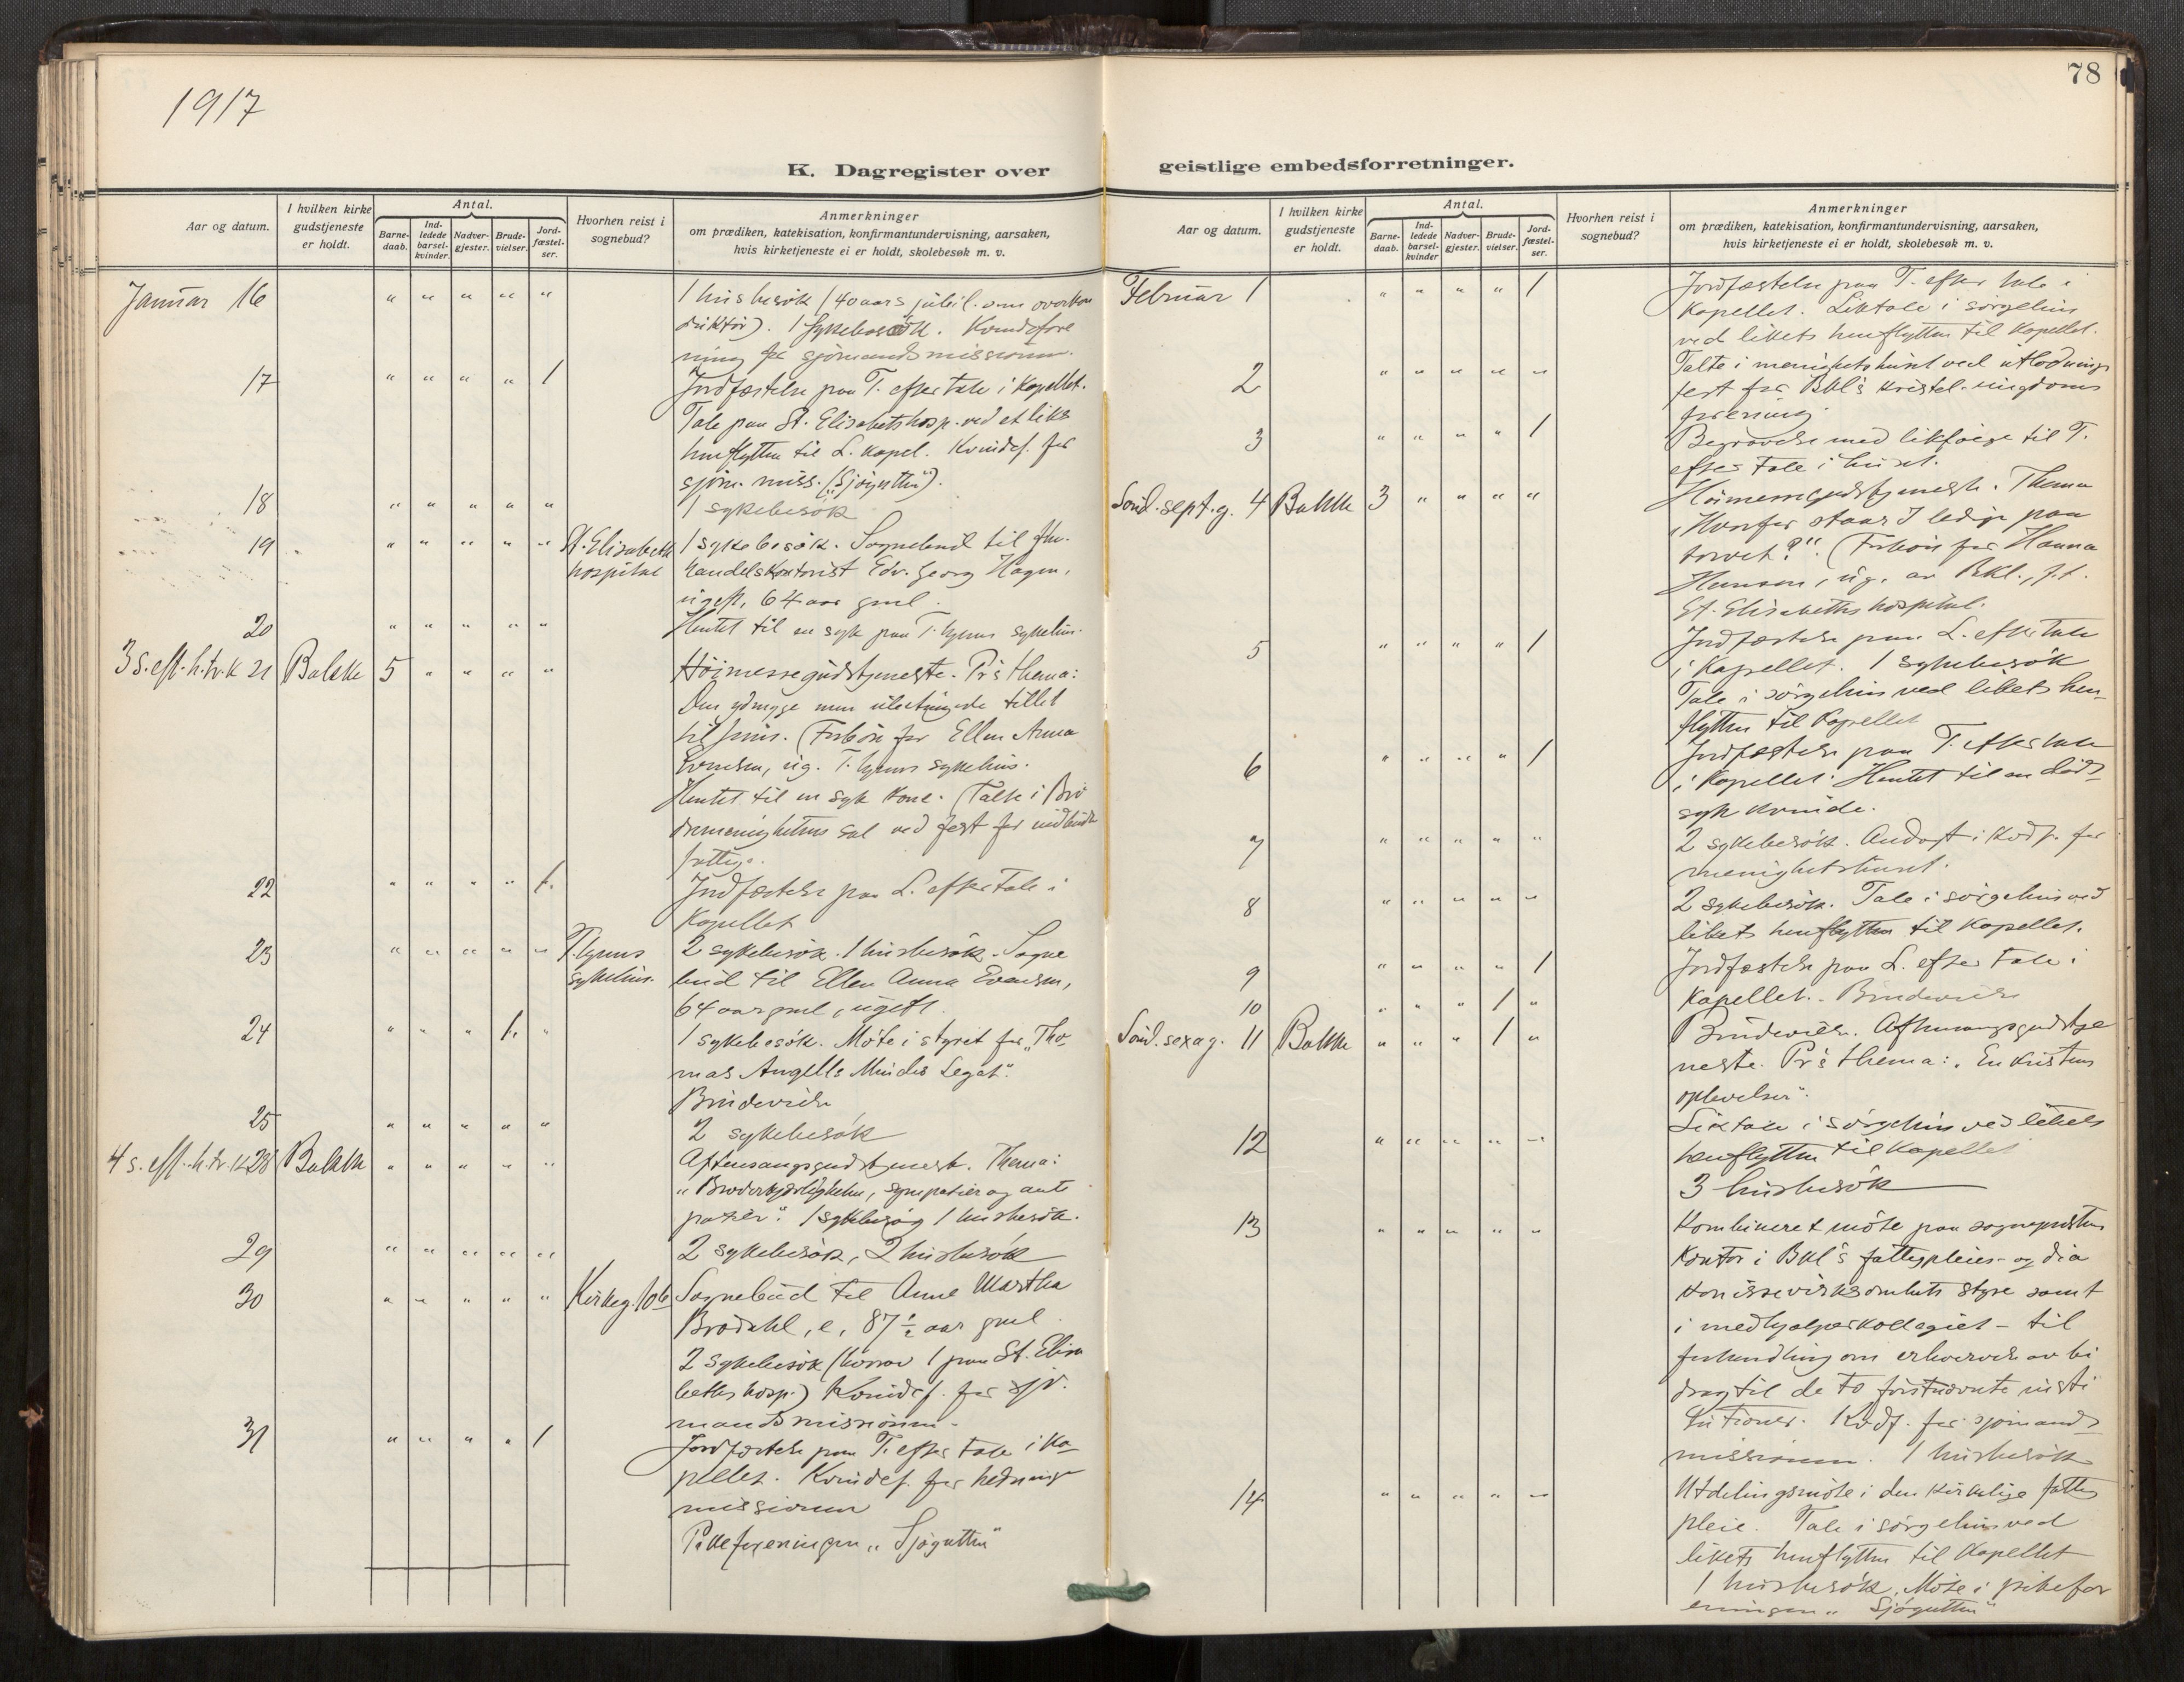 1917
78
K. Dagregister over geistlige embedsforretninger.
Aar og datum.
I hvilken kirke gudstjeneste er holdt.
Antal.
Barnedaab.
Indledede barselkvinder.
Nadvergjester.
Brudevielser.
Jordfæstelser.
Hvorhen reist i sognebud?
Anmerkninger
om prædiken, katekisation, konfirmantundervisning, aarsaken,
hvis kirketjeneste ei er holdt, skolebesøk m. v.
Januar 16 " " " " " 1 husbesøk (40 aars jubil. som overkon
duktør). 1 sykebesøk. Kvindefore
ning for sjømandsmissionen.
17 " " " " 1 Jordfæstelse paa T. efter tale i Kapellet.
Tale paa St. Elisabets hosp. ved et liks
henflytten til L. kapel. Kvindef. for
sjøm. miss. ("Sjøgutten").
18 " " " " " 1 sykebesøk
19 " " " " " St. Elisabeth 1 sykebesøk. Sognebud til fhv.
hospital handelskontorist Edv. Georg Hagen,
ugift, 64 aar gml.
20 " " " " " Hentet til en syk paa T. hjems sykehus.
3 s. eft. h. tr. k 21 Bakke 5 " " " " Høimessegudstjeneste. Pr's thema:
Den ydmyge men
til Jesus. (Forbøn for Ellen Anna
Evensen, ug. T. hjems sykehus.
Hentet til en syk kone. (Talte i Brø
dremenighetens sal ved fest for indbudte
fattige.
22 " " " " 1. Jordfæstelse paa L. efter tale i
Kapellet
23 " " " " " T. hjems 2 sykebesøk. 1 husbesøk. Sogne
sykehus. bud til Ellen Anna Evensen,
64 aar gml, ugift.
24 " " " 1. " 1 sykebesøk. Møte i styret for "Tho-
mas Angells Mindes Legat".
Brudevielse
25 " " " " " 2 sykebesøk
4 s. eft. h. tr. k 28 Bakke " " " " " Aftensangsgudstjeneste. Thema:
"Broderkjærligheten, sympatier og anti
patier". 1 sykebesøg 1 husbesøk.
29 " " " " " 2 sykebesøk, 2 husbesøk
30 " " " " " Kirkeg. 106 Sognebud til Anne Martha
Brødahl, e, 87 ½ aar gml.
2 sykebesøk (hvorav 1 paa St. Elisa
beths hosp.) Kvindef. for sjø-
mandsmissionen.
31 " " " " 1 Jordfæstelse paa T. efter tale i Ka-
pellet. Kvindef. for hedninge
missionen
Pikeforeningen "Sjøgutten"
Aar og datum.
I hvilken kirke gudstjeneste er holdt.
Antal.
Barnedaab.
Indledede barselkvinder
Nadvergjester.
Brudevielser.
Jordfæstelser.
Hvorhen reist i sognebud?
Anmerkninger
om prædiken, katekisation, konfirmantundervisning, aarsaken,
hvis kirketjeneste ei er holdt, skolebesøk m. v.
Februar 1 " " " " 1 Jordfæstelse paa T. efter tale i
Kapellet. Liktale i sørgehus
ved likets henflytten til Kapellet.
2 " " " " " Talte i menighetshuset ved utlodnings
fest for Bkl's kristel. ungdoms
forening.
3 " " " " 1 Begravelse med likfølge til T.
efter tale i huset.
Sønd. sept.g. 4 Bakke 3 " " " " Høimessegudstjeneste. Thema
"Hvorfor staar I ledige paa
torvet?". (Forbøn for Hanna
Hansen, ug. av Bkl., f.t.
St. Elisabeths hospital.
5 " " " " 1 Jordfæstelse paa L. efter tale
i Kapellet. 1 sykebesøk
Tale i sørgehus ved likets hen-
flytten til Kapellet
6 " " " " 1 Jordfæstelse paa T. efter tale
i Kapellet. Hentet til en døds-
syk kvinde.
7 " " " " " 2 sykebesøk. Andagt i Kvdf. for
menighetshuset.
8 " " " " " 2 sykebesøk. Tale i sørgehus ved
likets henflytten til Kapellet.
9 " " " " 1 Jordfæstelse paa L. efter tale i
Kapellet.
10 " " " 1 " Brudevielse
Sønd. sexag. 11 Bakke " " " 1 " Brudevielse. Aftensangsgudstje
neste. Pr's thema: "En kristens
oplevelser".
12 " " " " " Liktale i sørgehus ved likets
henflytten til Kapellet
3 husbesøk
13 " " " " " Kombineret møte paa sogneprestens
Kontor i Bkl's fattigpleies- og dia
konissevirksomhets styre samt
i medhjelperkollegiet - til
forhandling om erhvervelse av bi
drag til de to førstnævnte insti
tutioner. Kvdf. for sjømands
missionen. 1 husbesøk
14 " " " " " Utdelingsmøte i den kirkelige fattig
pleie. Tale i sørgehus ved
likets henflytten til Kapellet
1 husbesøk. Møte i pikefor
eningen "Sjøgutten"